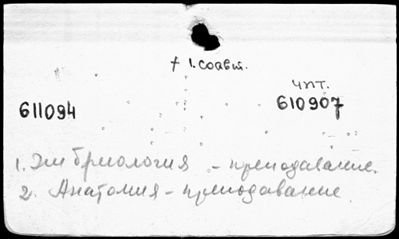 + 1. соавт.
чит.
611094 610907
1. Эмбриология - преподавание.
2. Анатомия - преподавание